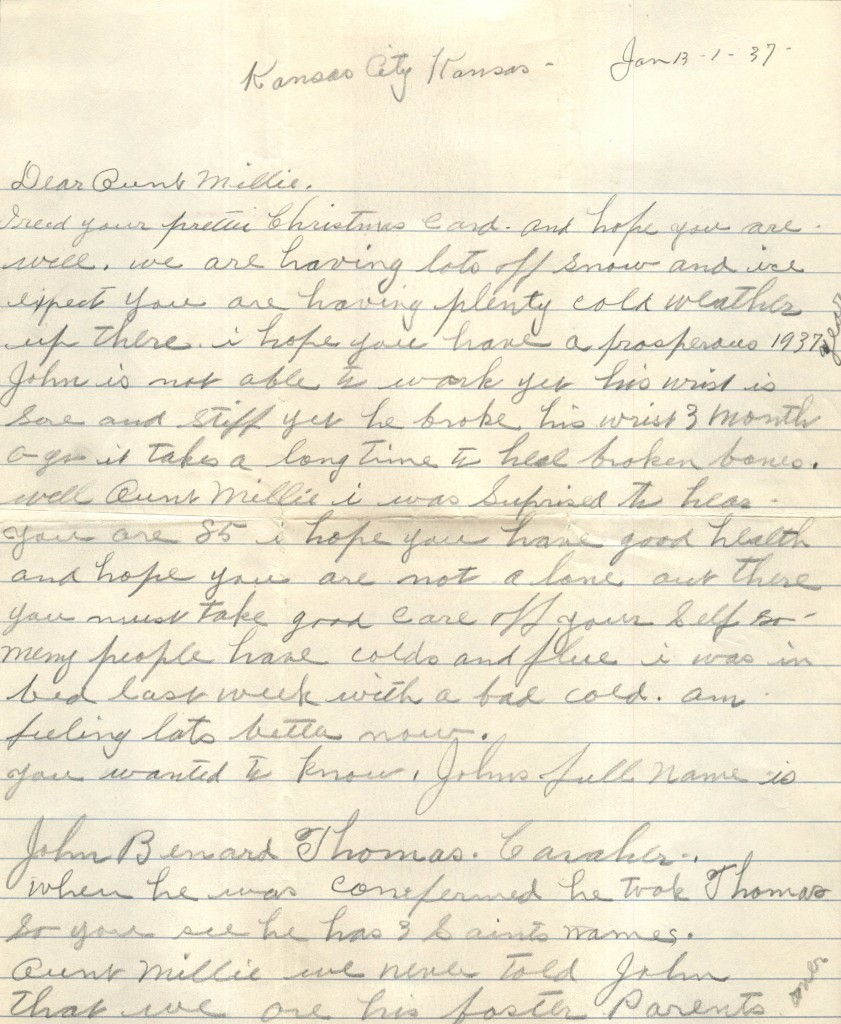 Kansas City Kansas - Jan 13-1-37-
Dear Aunt Millie.
I recd your prettie Christmas Card. and hope you are
well. we are having lots off snow and ice
expect you are having plenty cold weather
up there. i hope you have a prosperous 1937 year
John is not able to work yet his wrist is
sore and stiff yet he broke his wrist 3 month
a-go it takes a long time to heal broken bones.
well Aunt Millie i was suprised to hear
you are 85 i hope you have good health
and hope you are not a lone out there
you must take good care off your self so-
meny people have colds and flue i was in
bed last week with a bad cold. am
feeling lots betta now.
you wanted to know. Johns full name is
John Benard Thomas. Caraher.
when he was coneferned he took Thomas
so you see he has 3 Saints names.
Aunt Millie we never told John
that we are his foster Parents
over